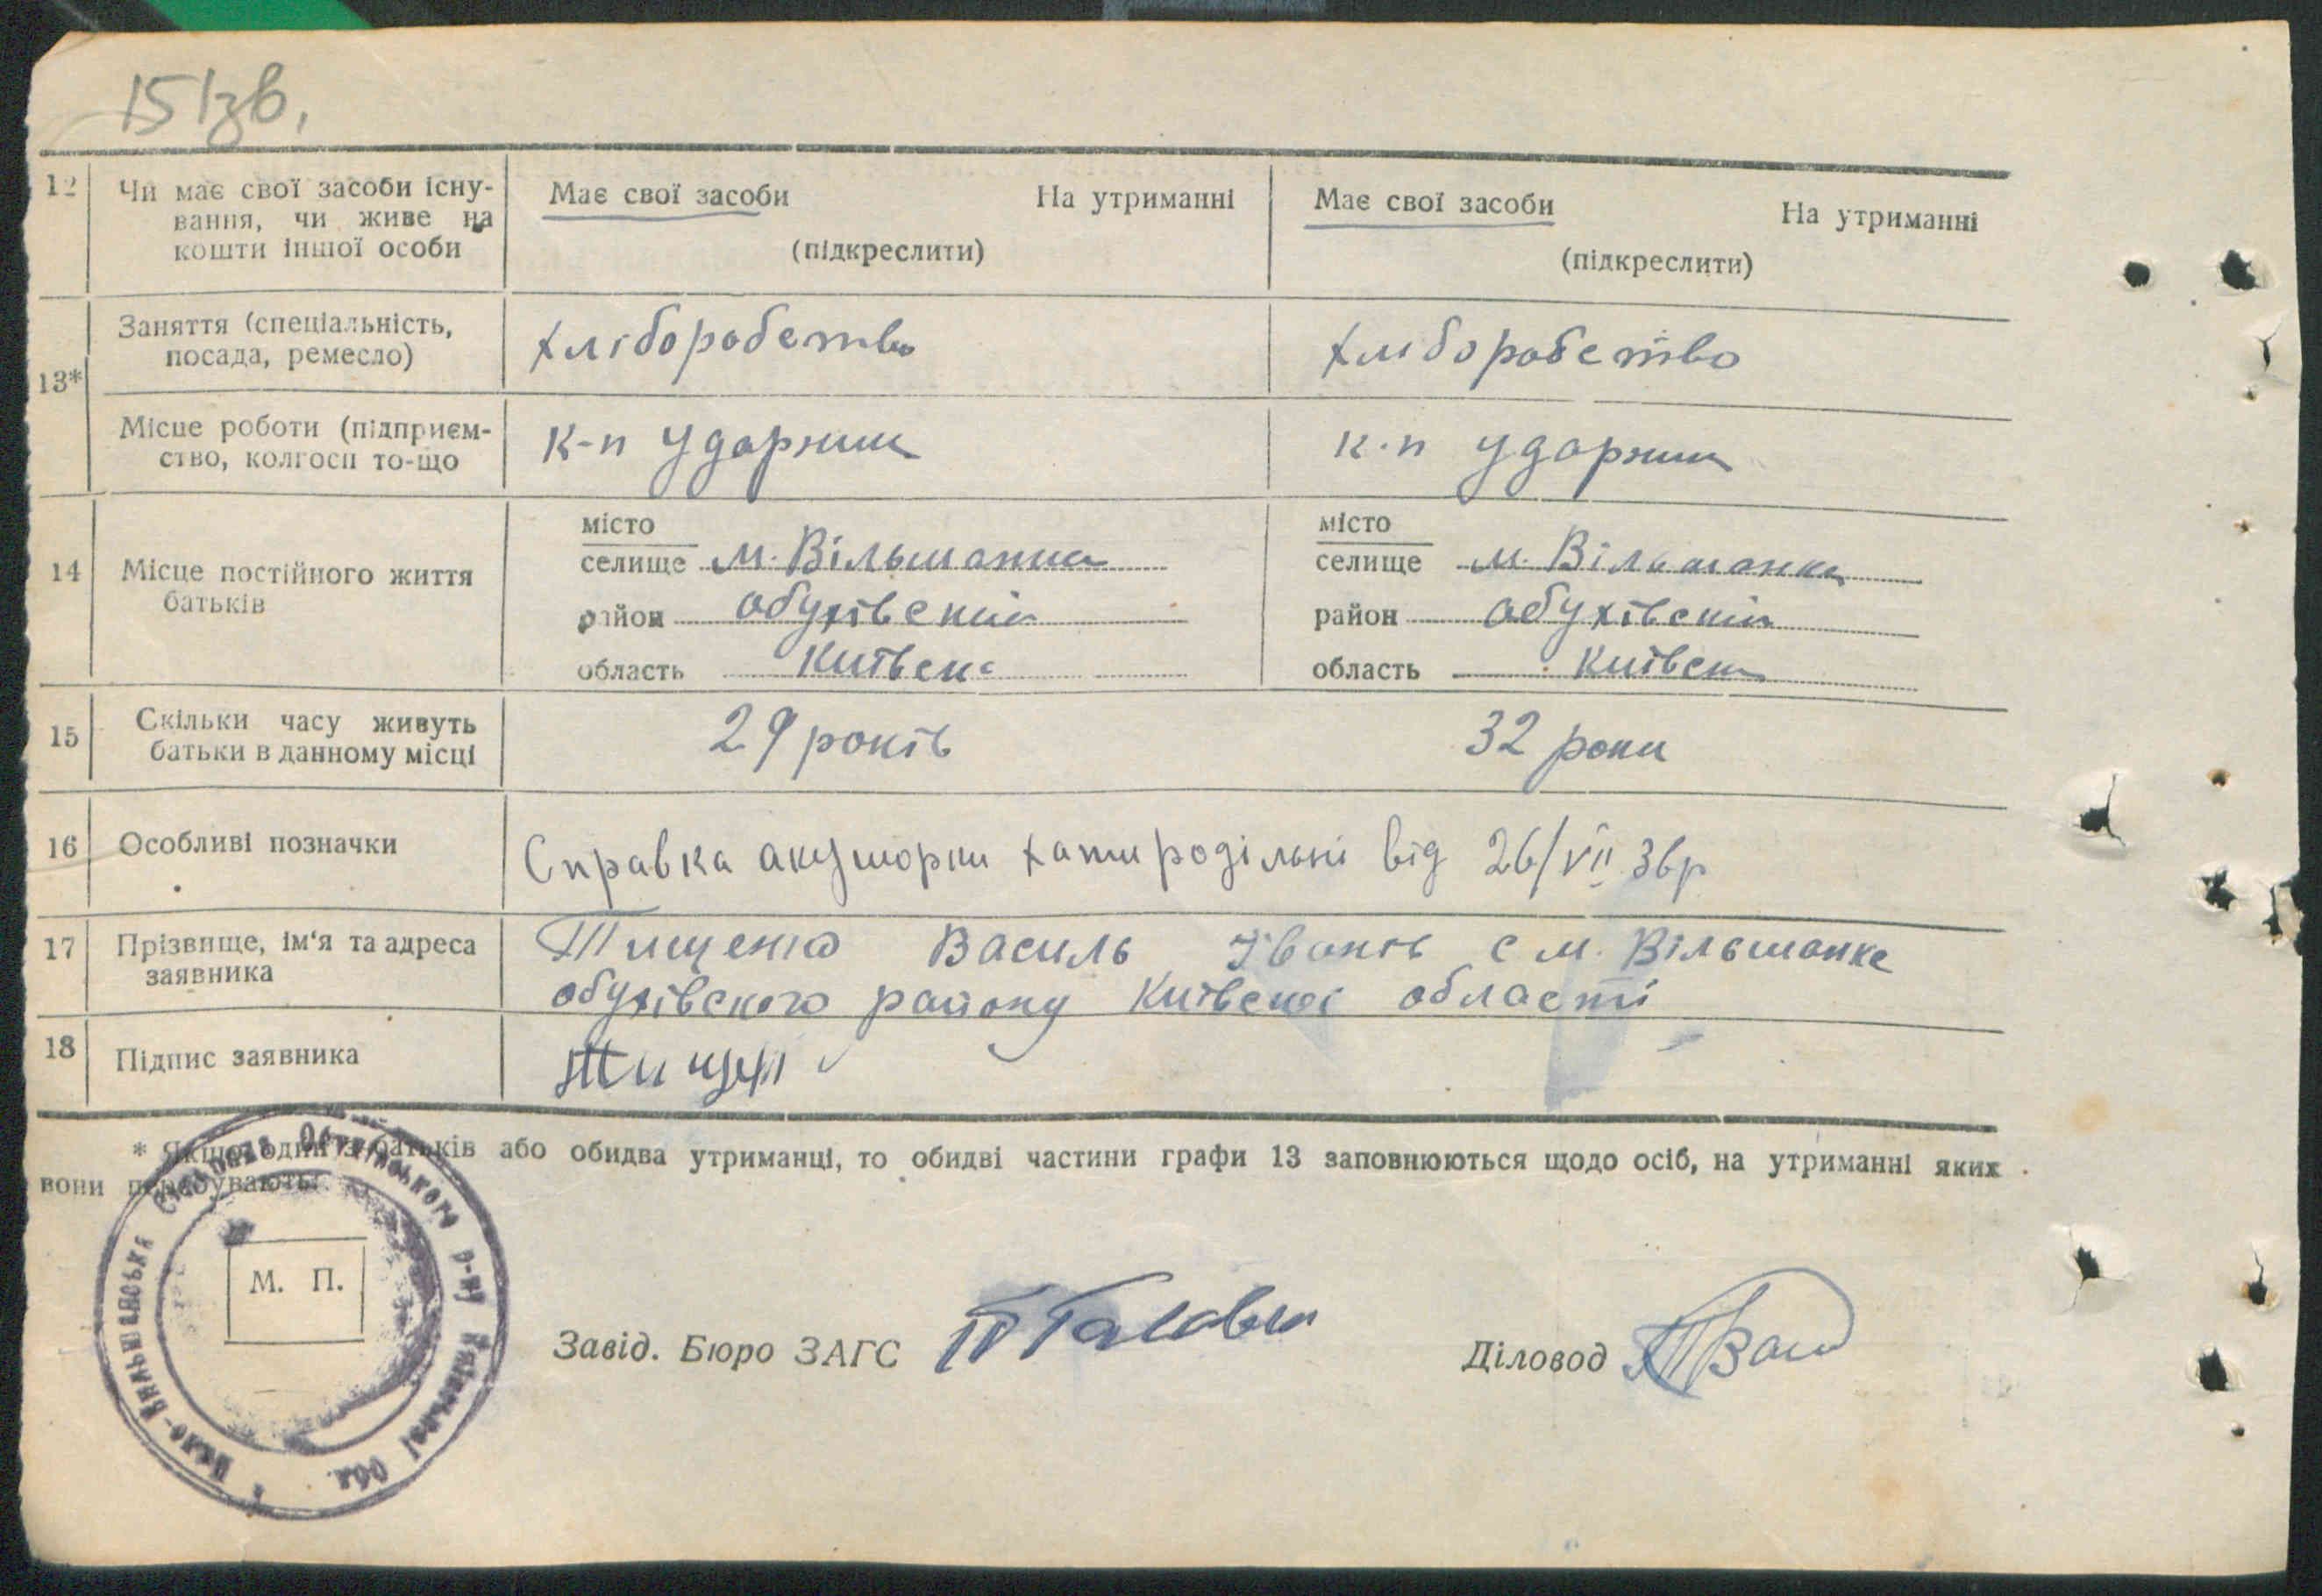 15 ізв.
12 Чи має свої засоби існу-
вання, чи живе на
кошти іншої особи
Має свої засоби На утриманні
(підкреслити)
Має свої засоби На утриманні
(підкреслити)
13*
Заняття (спеціальність,
посада, ремесло)
хліборобство
хліборобство
Місце роботи (підприєм-
ство, колгосп то-що
к-п Ударник
к-п Ударник
14 Місце постійного життя
батьків
місто
селище м. Вільшанка
район обухівский
область Київск
місто
селище м. Вільшанка
район обухівский
область Київск
15 Скільки часу живуть
батьки в данному місці
29 років
32 роки
16 Особливі позначки
Справка акушорки хати родільні від 26/VII 36р
17 Прізвище, ім'я та адреса
заявника
Тищенко Василь Іванів с м. Вільшанке
обухівского району Київскої області
18 Підпис заявника
Тищен
* Якщо один з батьків або обидва утриманці, то обидві частини графи 13 заповнюються щодо осіб, на утриманні яких
вони перебувають.
Мало-Вильшанська Сільрада Обухівського р-ну Київської Обл.
М. П.
Завід. Бюро ЗАГС
Діловод